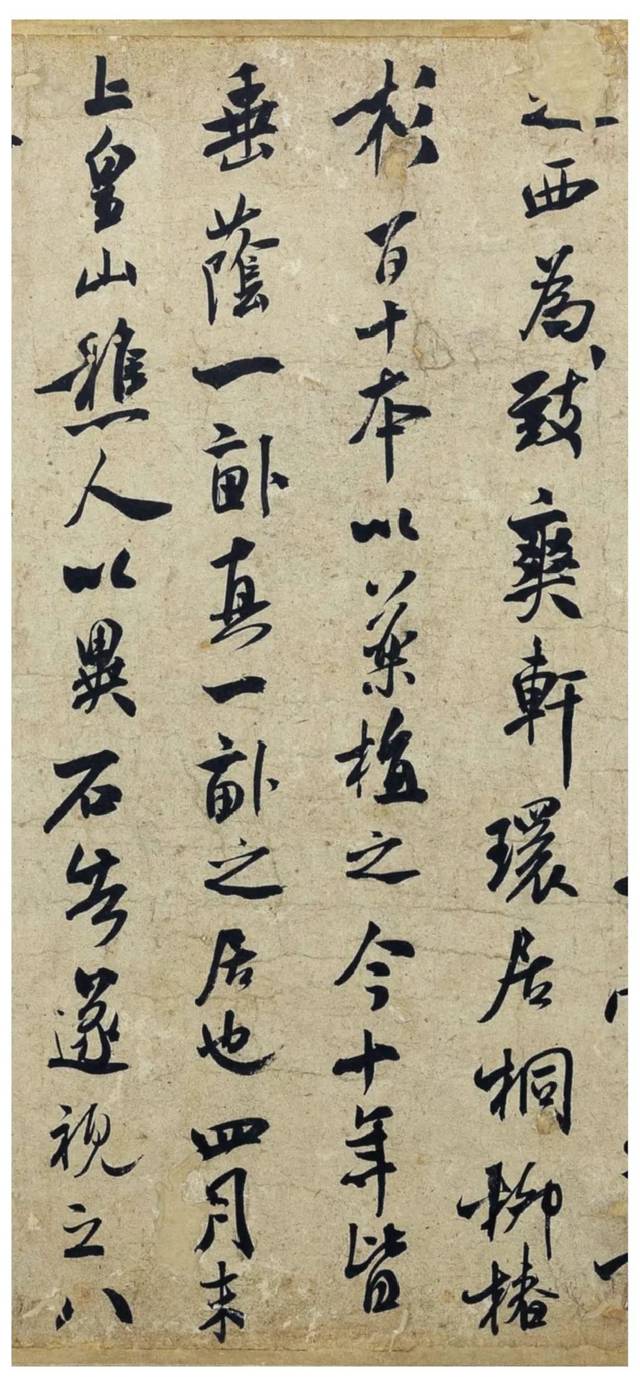 之西為致爽軒環居桐柳椿
杉百十本以藥植之今十年皆
垂蔭一畝真一畝之居也四月末
上皇山樵人以異石告遂視之八